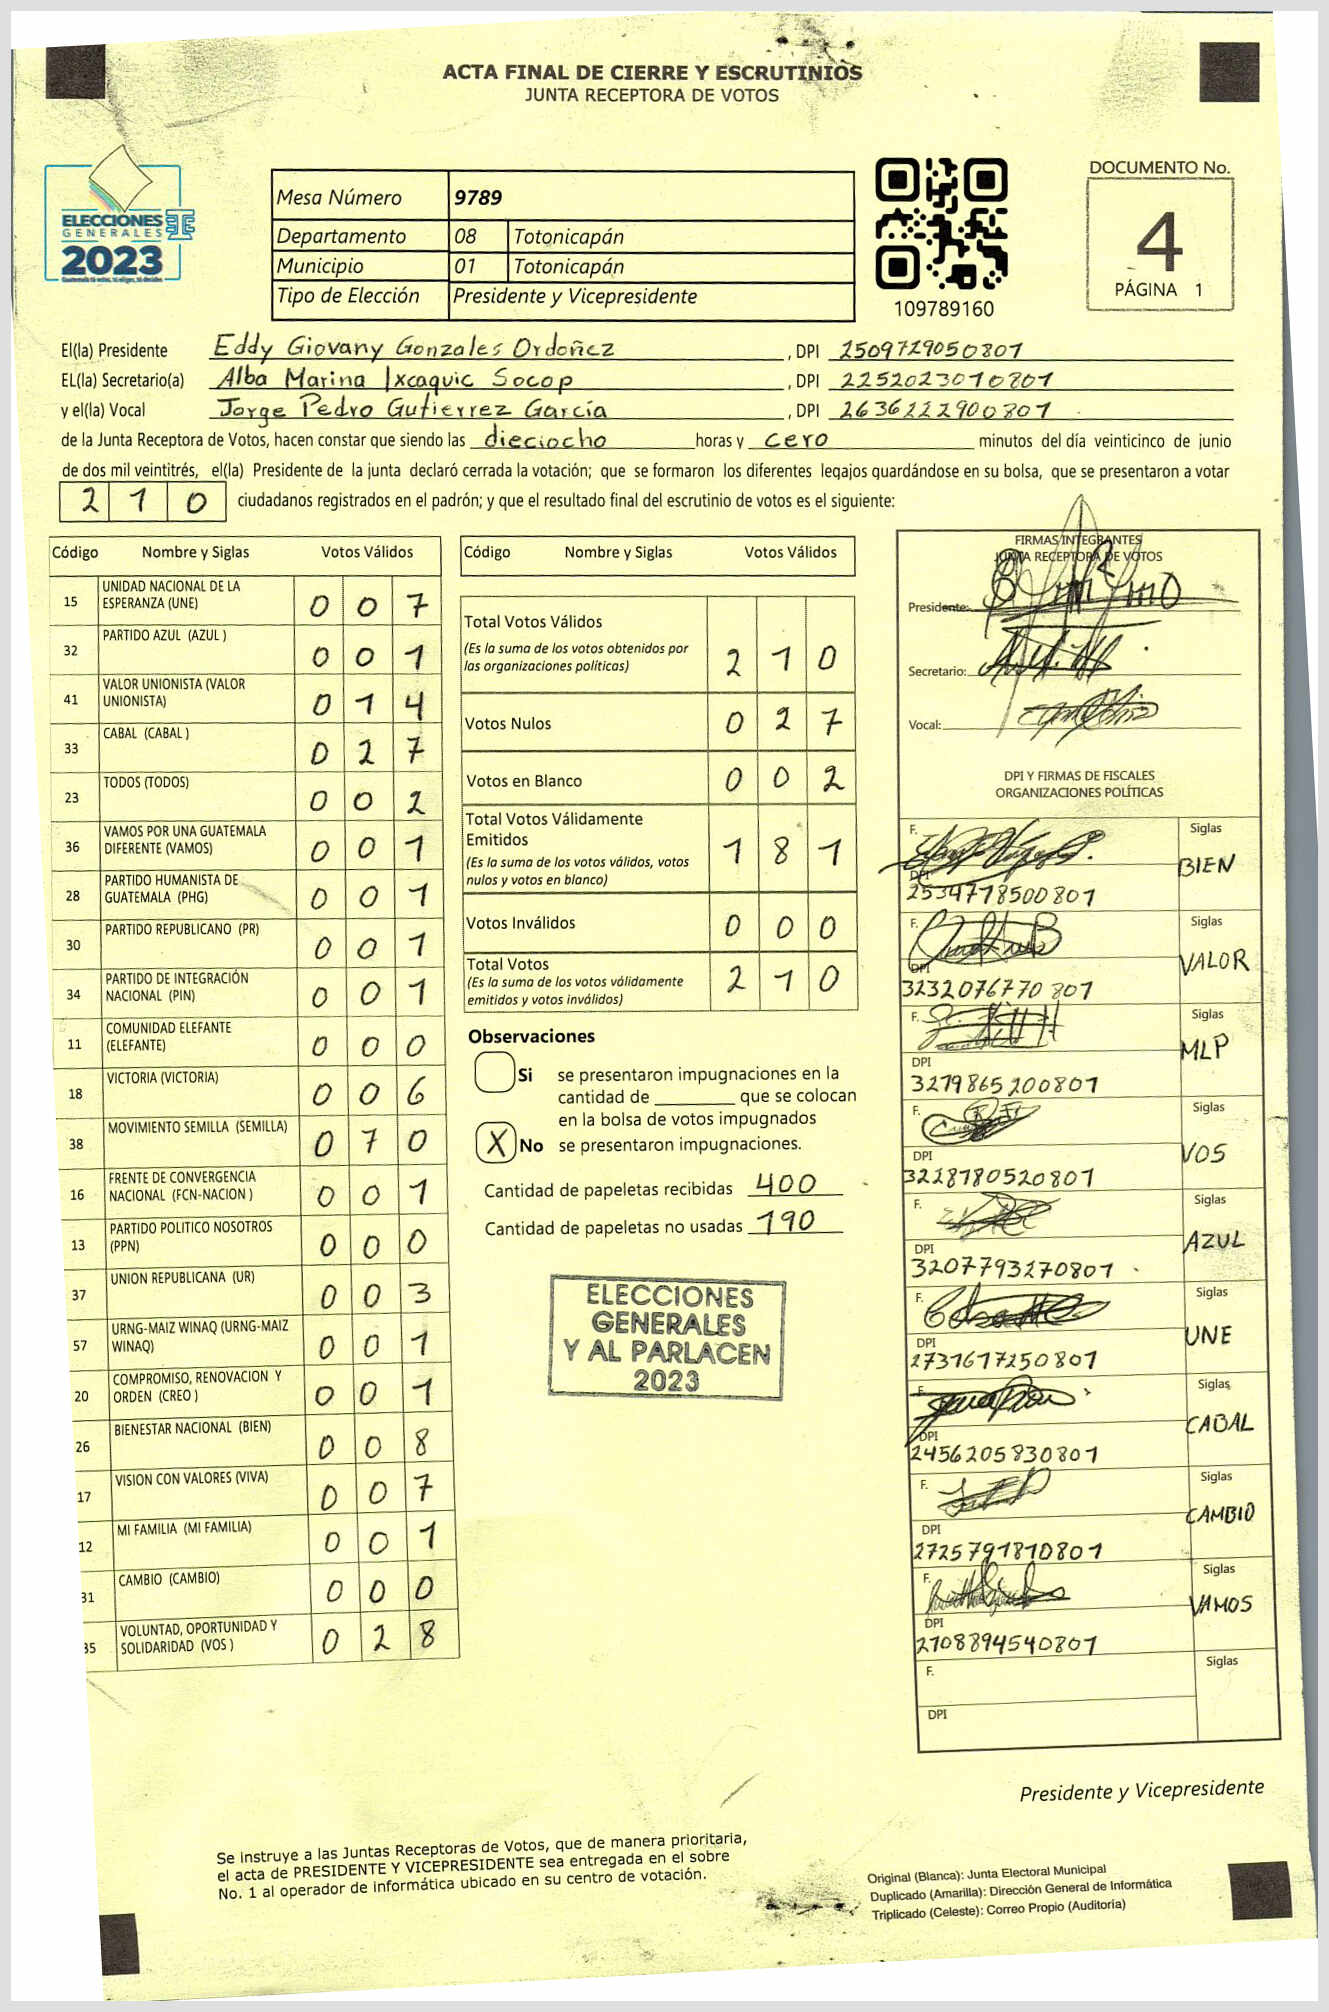 ACTA FINAL DE CIERRE Y ESCRUTINIOS
JUNTA RECEPTORA DE VOTOS
ELECCIONES
GENERALES
2023
Mesa Número 9789
Departamento 08 Totonicapán
Municipio 01 Totonicapán
Tipo de Elección Presidente y Vicepresidente
109789160
DOCUMENTO No.
4
PÁGINA 1
El(la) Presidente Eddy Giovany Gonzales Ordoñez , DPI 2509729050801
EL(la) Secretario(a) Alba Marina Ixcaquic Socop , DPI 2252023010801
y el(la) Vocal Jorge Pedro Gutierrez García , DPI 2636222900801
de la Junta Receptora de Votos, hacen constar que siendo las dieciocho horas y cero minutos del día veinticinco de junio
de dos mil veintitrés, el(la) Presidente de la junta declaró cerrada la votación; que se formaron los diferentes legajos guardándose en su bolsa, que se presentaron a votar
210 ciudadanos registrados en el padrón; y que el resultado final del escrutinio de votos es el siguiente:
Código Nombre y Siglas Votos Válidos
15 UNIDAD NACIONAL DE LA ESPERANZA (UNE) 0 0 7
32 PARTIDO AZUL (AZUL ) 0 0 1
41 VALOR UNIONISTA (VALOR UNIONISTA) 0 1 4
33 CABAL (CABAL ) 0 2 7
23 TODOS (TODOS) 0 0 2
36 VAMOS POR UNA GUATEMALA DIFERENTE (VAMOS) 0 0 1
28 PARTIDO HUMANISTA DE GUATEMALA (PHG) 0 0 1
30 PARTIDO REPUBLICANO (PR) 0 0 1
34 PARTIDO DE INTEGRACIÓN NACIONAL (PIN) 0 0 1
11 COMUNIDAD ELEFANTE (ELEFANTE) 0 0 0
18 VICTORIA (VICTORIA) 0 0 6
38 MOVIMIENTO SEMILLA (SEMILLA) 0 7 0
16 FRENTE DE CONVERGENCIA NACIONAL (FCN-NACION ) 0 0 1
13 PARTIDO POLITICO NOSOTROS (PPN) 0 0 0
37 UNION REPUBLICANA (UR) 0 0 3
57 URNG-MAIZ WINAQ (URNG-MAIZ WINAQ) 0 0 1
20 COMPROMISO, RENOVACION Y ORDEN (CREO ) 0 0 1
26 BIENESTAR NACIONAL (BIEN) 0 0 8
17 VISION CON VALORES (VIVA) 0 0 7
12 MI FAMILIA (MI FAMILIA) 0 0 1
31 CAMBIO (CAMBIO) 0 0 0
35 VOLUNTAD, OPORTUNIDAD Y SOLIDARIDAD (VOS ) 0 2 8
Código Nombre y Siglas Votos Válidos
Total Votos Válidos
(Es la suma de los votos obtenidos por
las organizaciones políticas) 2 1 0
Votos Nulos 0 2 7
Votos en Blanco 0 0 2
Total Votos Válidamente
Emitidos
(Es la suma de los votos válidos, votos
nulos y votos en blanco) 1 8 1
Votos Inválidos 0 0 0
Total Votos
(Es la suma de los votos válidamente
emitidos y votos inválidos) 2 1 0
Observaciones
Si se presentaron impugnaciones en la
cantidad de ________ que se colocan
en la bolsa de votos impugnados
X No se presentaron impugnaciones.
Cantidad de papeletas recibidas 400
Cantidad de papeletas no usadas 190
ELECCIONES
GENERALES
Y AL PARLACEN
2023
FIRMAS INTEGRANTES
JUNTA RECEPTORA DE VOTOS
Presidente:
Secretario:
Vocal:
DPI Y FIRMAS DE FISCALES
ORGANIZACIONES POLÍTICAS
F. Siglas
DPI BIEN
2534778500801
F. Siglas
DPI VALOR
3232076770801
F. Siglas
DPI MLP
3279865200801
F. Siglas
DPI VOS
3228780520801
F. Siglas
DPI AZUL
3207793270801
F. Siglas
DPI UNE
2731617250801
F. Siglas
DPI CABAL
2456205830801
F. Siglas
DPI CAMBIO
2725791810801
F. Siglas
DPI VAMOS
2708894540801
F. Siglas
DPI
Presidente y Vicepresidente
Se instruye a las Juntas Receptoras de Votos, que de manera prioritaria,
el acta de PRESIDENTE Y VICEPRESIDENTE sea entregada en el sobre
No. 1 al operador de informática ubicado en su centro de votación.
Original (Blanca): Junta Electoral Municipal
Duplicado (Amarilla): Dirección General de Informática
Triplicado (Celeste): Correo Propio (Auditoria)